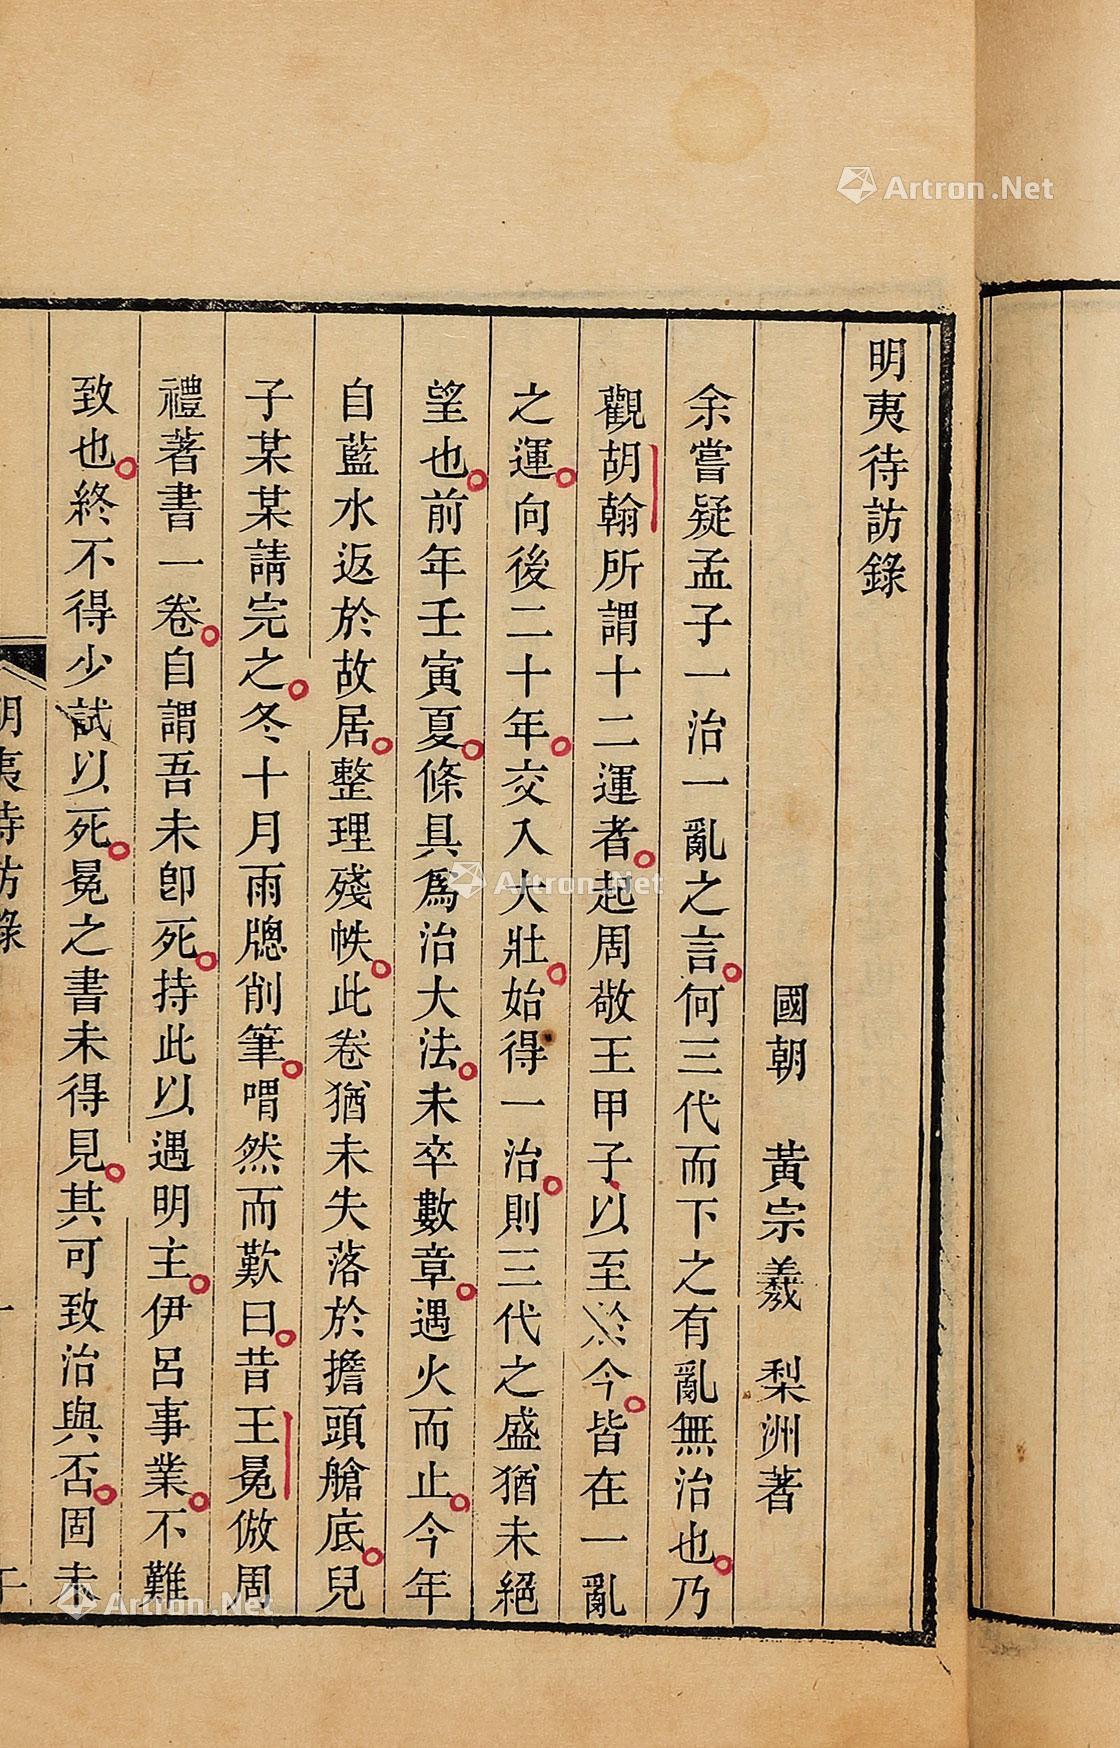 明夷待訪錄
國朝　黃宗羲　梨洲著
余嘗疑孟子一治一亂之言何三代而下之有亂無治也乃
觀胡翰所謂十二運者起周敬王甲子以至於今皆在一亂
之運向後二十年交入大壯始得一治則三代之盛猶未絕
望也前年壬寅夏條具為治大法未卒數章遇火而止今年
自藍水返於故居整理殘帙此卷猶未失落於擔頭艙底兒
子某某請完之冬十月雨牕削筆喟然而歎曰昔王冕倣周
禮著書一卷自謂吾未卽死持此以遇明主伊呂事業不難
致也終不得少試以死冕之書未得見其可致治與否固未
明夷待訪錄
Artron.Net
Artron.Net
Artron.Net